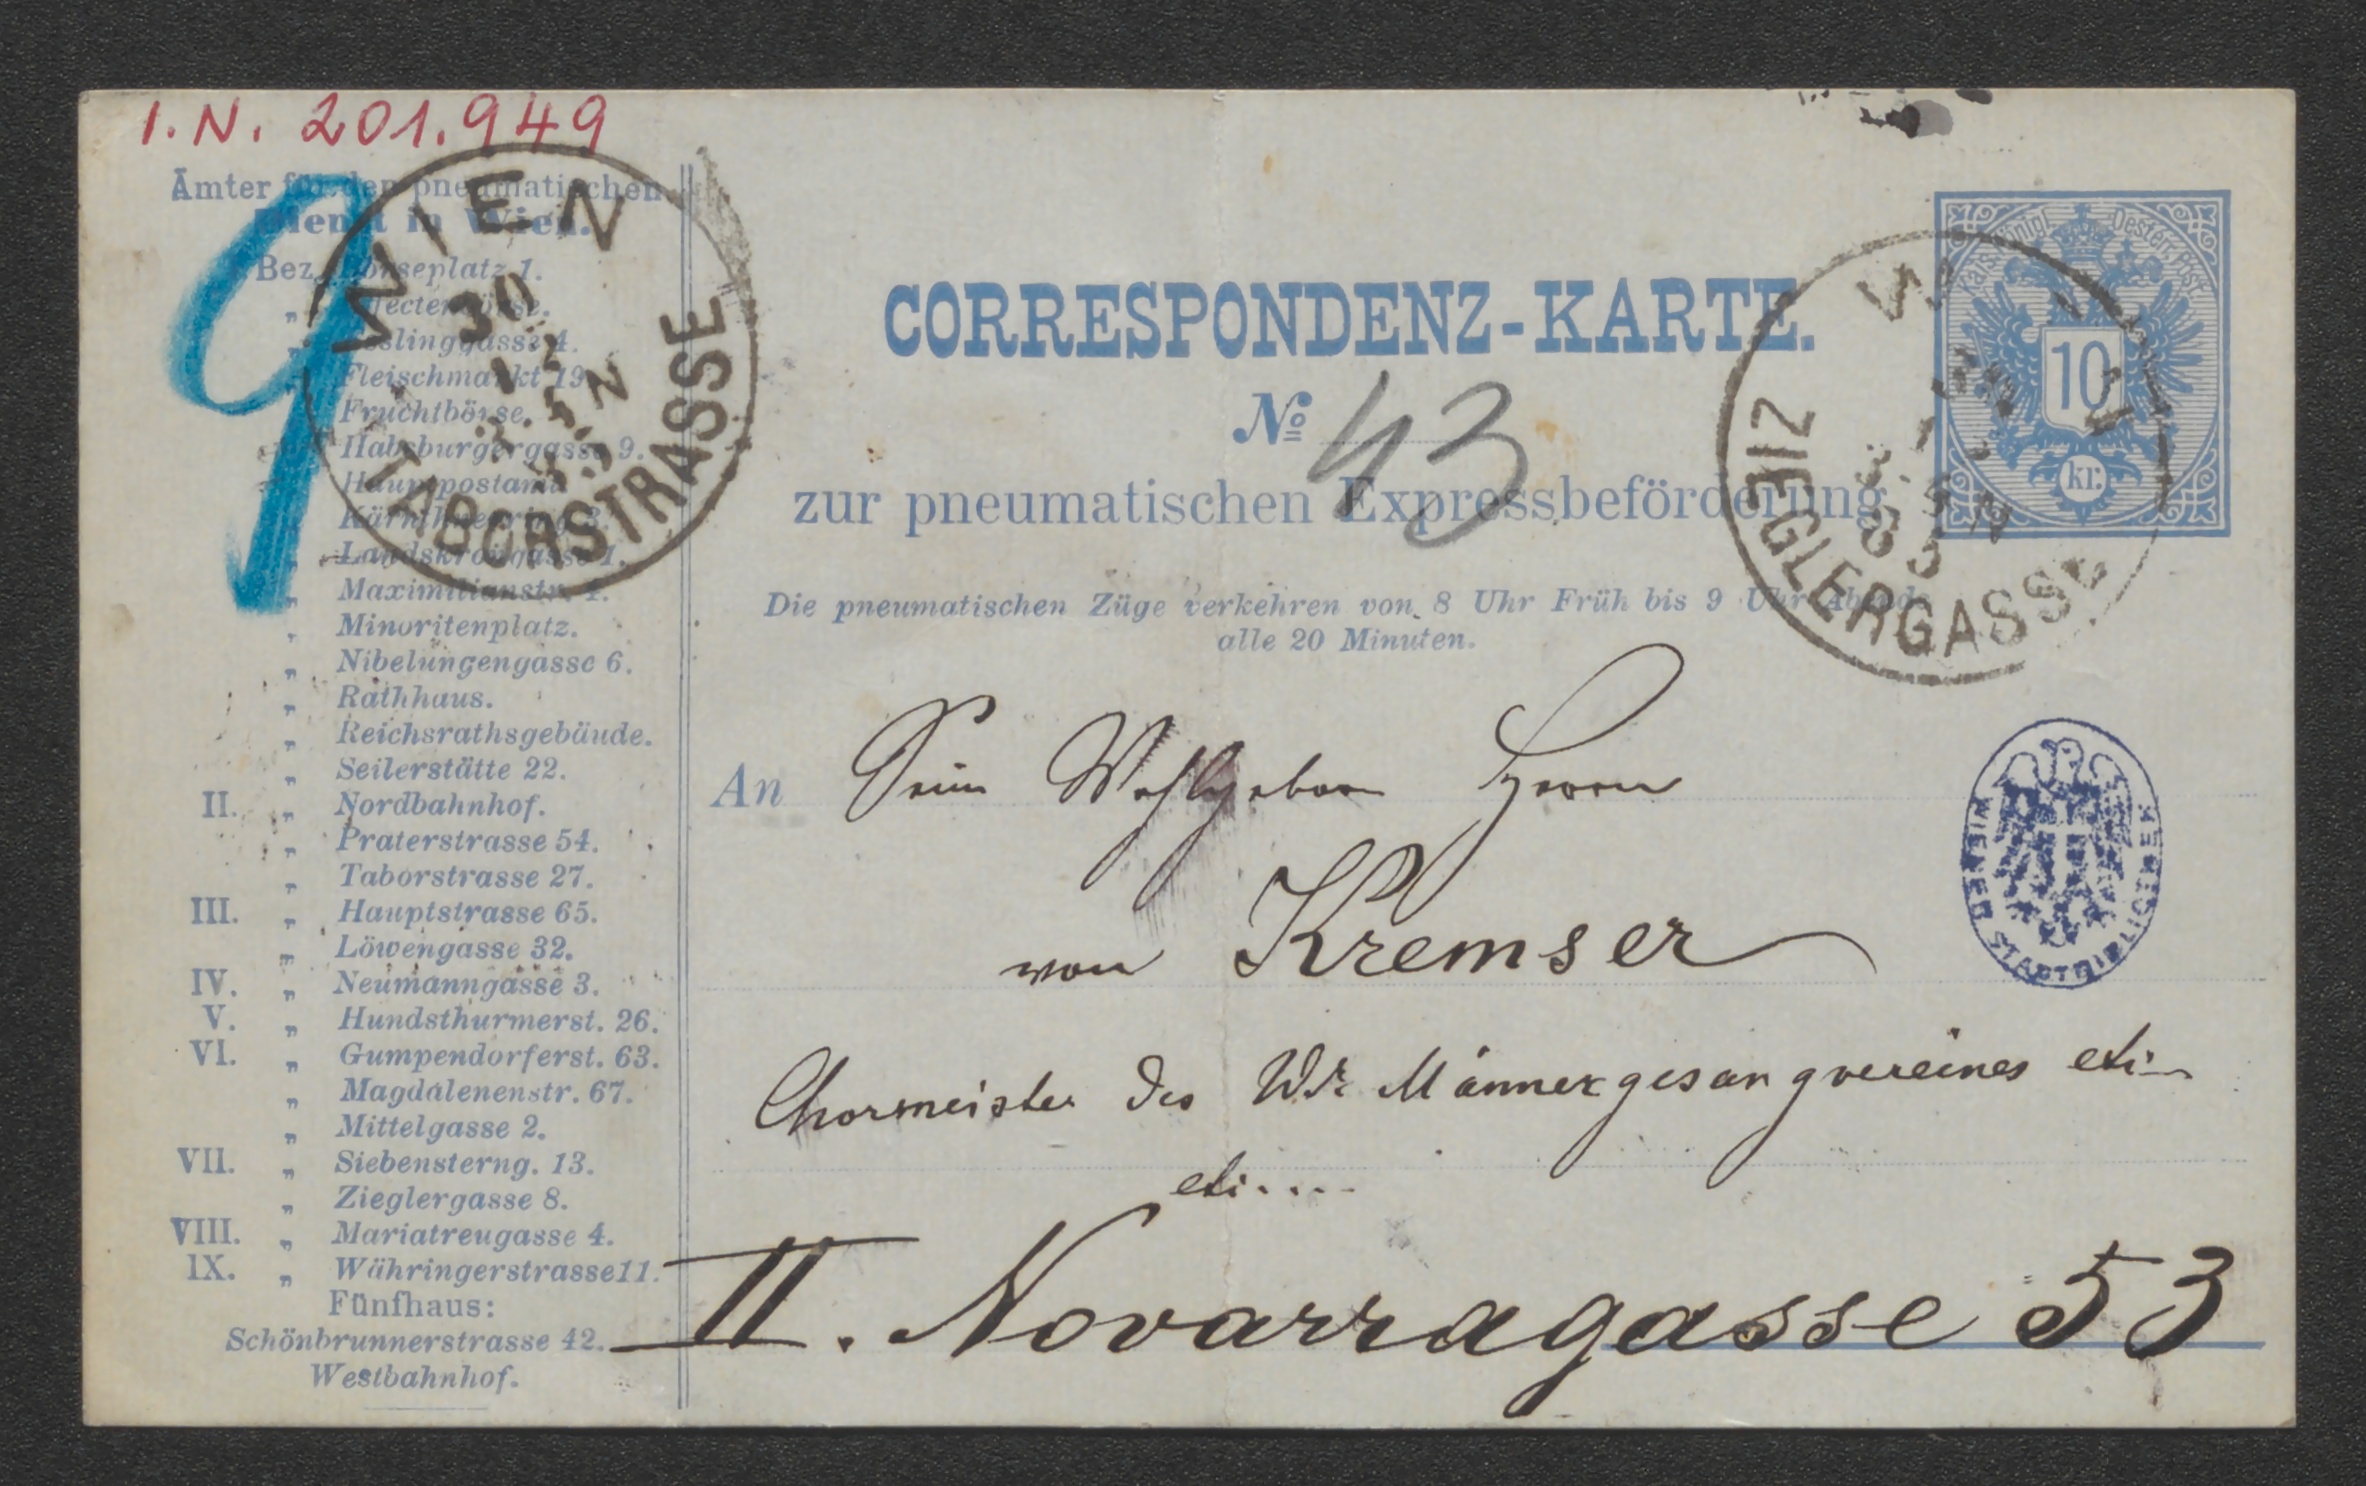 I.N. 201.949
Ämter für den pneumatischen
Dienst in Wien.
I. Bez. Börseplatz 1.
„ Effectenbörse.
„ Esslinggasse 4.
„ Fleischmarkt 19.
„ Fruchtbörse.
„ Habsburgergasse 9.
„ Hauptpostamt.
„ Kärnthnerring 3.
„ Landskrongasse 1.
„ Maximilianstr. 4.
„ Minoritenplatz.
„ Nibelungengasse 6.
„ Rathhaus.
„ Reichsrathsgebäude.
„ Seilerstätte 22.
II. „ Nordbahnhof.
„ Praterstrasse 54.
„ Taborstrasse 27.
III. „ Hauptstrasse 65.
„ Löwengasse 32.
IV. „ Neumanngasse 3.
V. „ Hundsthurmerst. 26.
VI. „ Gumpendorferst. 63.
„ Magdalenenstr. 67.
„ Mittelgasse 2.
VII. „ Siebensterng. 13.
„ Zieglergasse 8.
VIII. „ Mariatreugasse 4.
IX. „ Währingerstrasse 11.
Fünfhaus:
Schönbrunnerstrasse 42.
Westbahnhof.
9
WIEN
30
TABORSTRASSE
CORRESPONDENZ-KARTE.
No 43
zur pneumatischen Expressbeförderung.
Die pneumatischen Züge verkehren von 8 Uhr Früh bis 9 Uhr Abends
alle 20 Minuten.
Kais. Königl. Oesterr. Post
10
kr.
WIEN
ZIEGLERGASSE
An Seine Wohlgeboren Herrn
von Kremser
Chormeister des Wr Männergesangvereines etc
etc....
II. Novarragasse 53
WIENER STADTBIBLIOTHEK